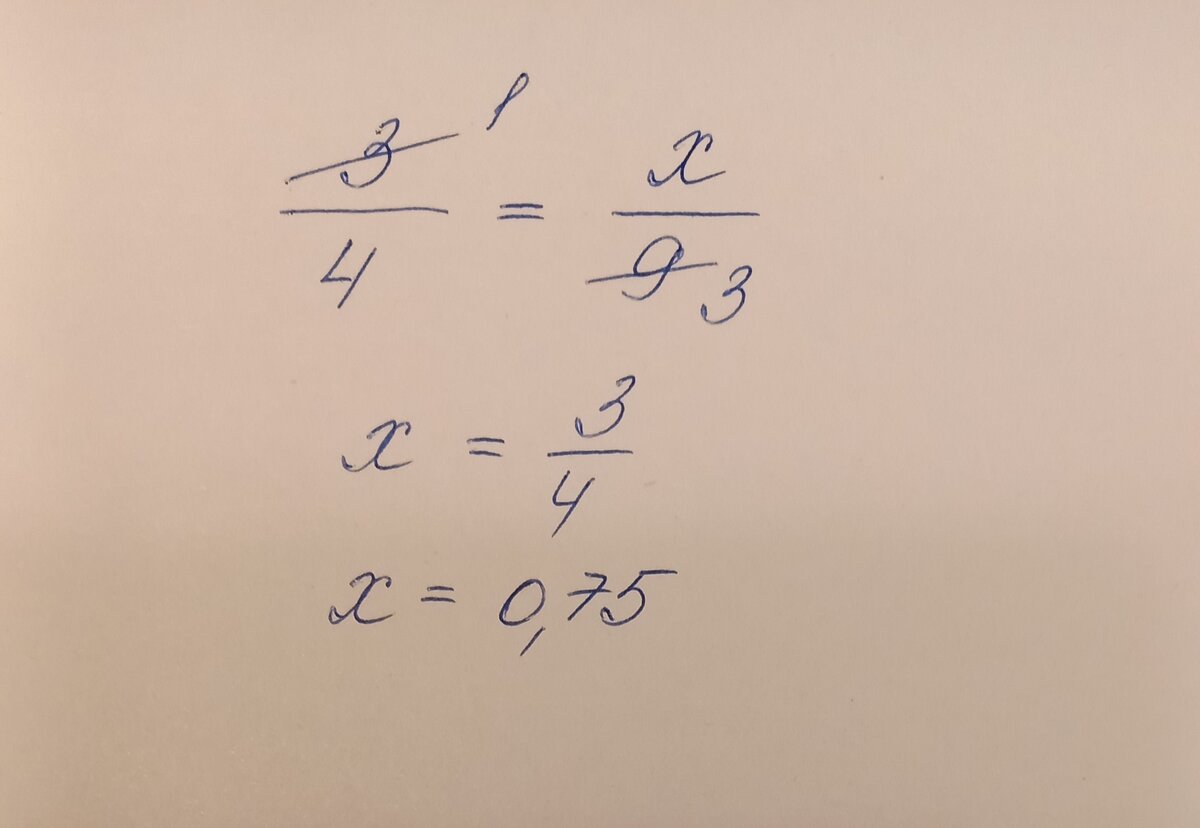 3/4 = x/9 1 3
x = 3/4
x = 0,75